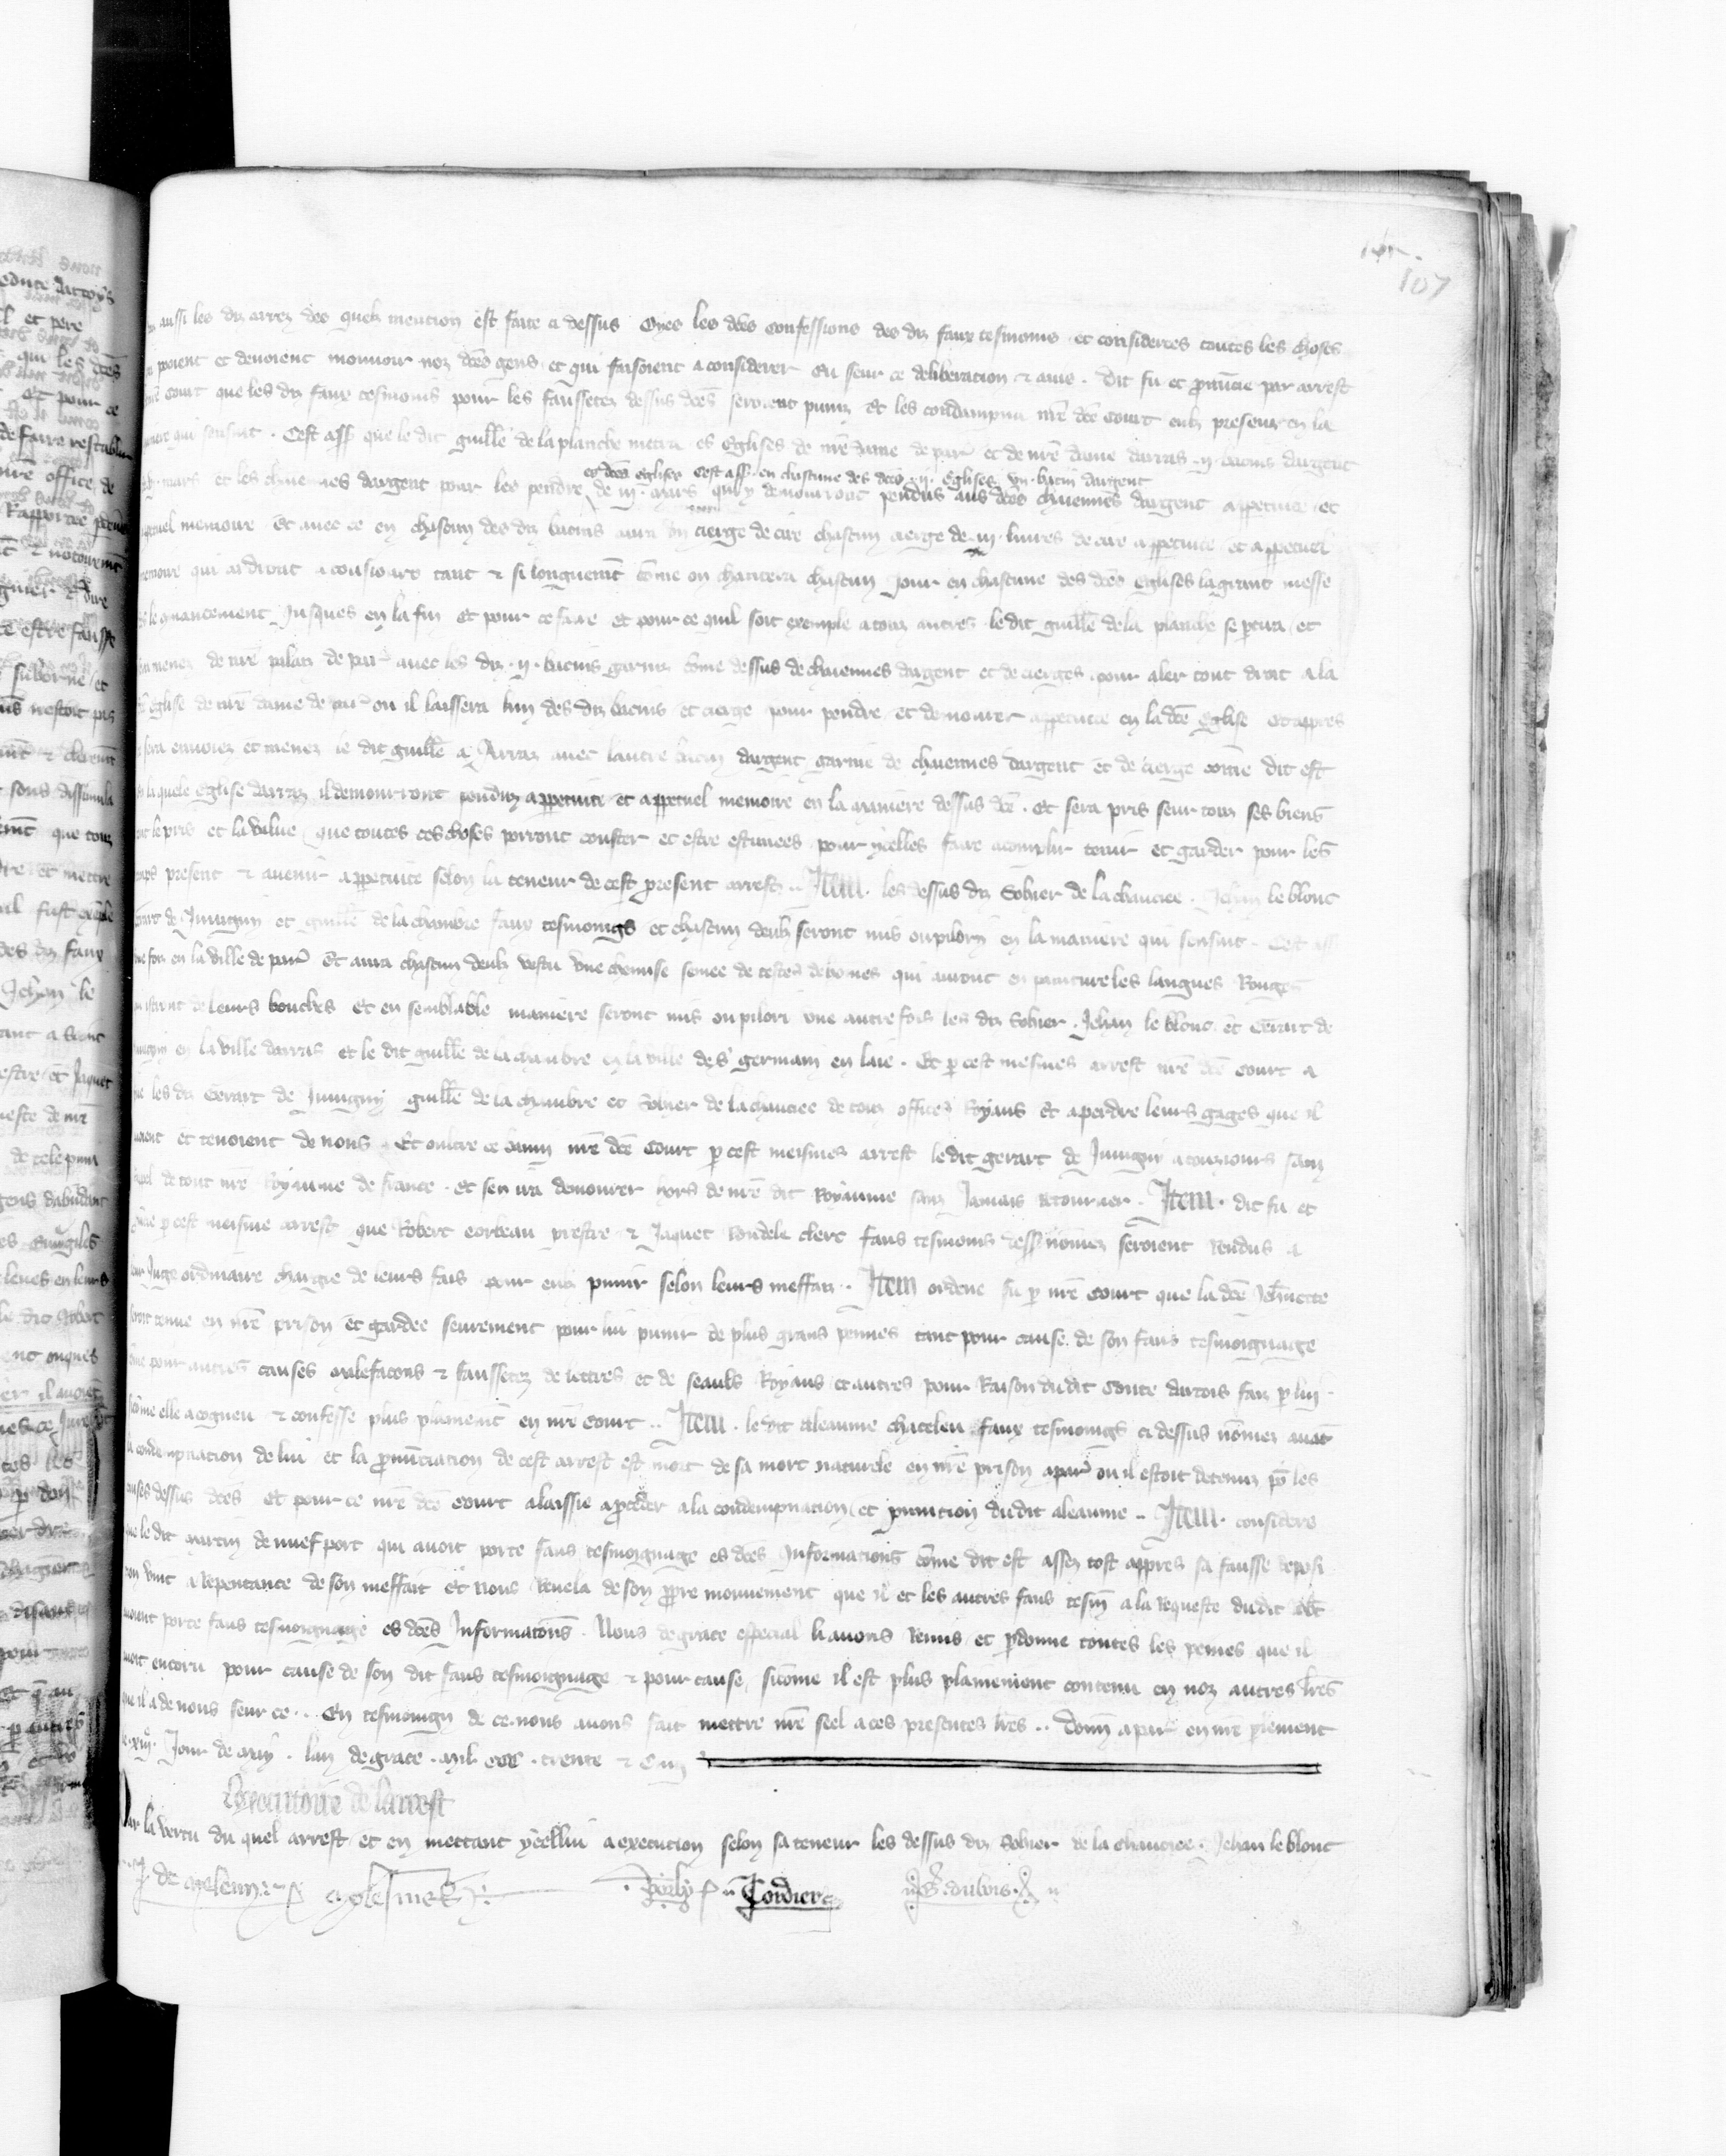 107
aussi les diz arrez des quelx mention est faite ci dessus Oyes les dces confessions des diz faux tesmoins et considerees toutes les choses
povient et devoient mouvoir noz dces gens et qui faisoient a considerer eu seur ce deliberation & avis . Dit fu et pronuncie par arrest
court que les diz faux tesmoins pour les faussetez dessus dces seroient puniz et les condampna nre dce Court eulx presenz en la
qui sensuit . Cest ass que le dit guille de la planche metra es eglises de nre dame de par et de nre dame darras .ij. bacins dargent
es dces eglises Cest ass en chascune des dces .ij. eglises un bacin dargent
mars et les chaiennes dargent pour les pendre de iij. mars qui y demourront pendus aus dces chaiennes dargent a ppetuite et
ppetuel memoire Et avec ce en chascun des diz bacins aura un cierge de cire chascun cierge de iij. livres de cire a ppetuite et a ppetuel
memoire qui ardront a tousjours tant & si longuemt come on chantera chascun jour en chascune des dces eglises la grant messe
le comancement jusques en la fin Et pour ce faire et pour ce quil soit exemple a touz autres le dit guille de la planche se ptira et
menez de nre palais de par avec les diz .ij. bacins garniz come dessus de chaiennes dargent et de cierges pour aler tout droit a la
eglise de nre dame de par ou il laissera lun des diz bacins et cierge pour pendre et demourer a ppetuite en la dce eglise Et appres
sera envoiez et menez le dit guille a Arraz avec lautre bacin dargent garnie de chaiennes dargent et de cierge come dit est
la quele eglise darraz il demourront penduz a ppetuite et a ppetuel memoire en la maniere dessus dce . Et sera pris seur touz ses biens
le pris et la value que toutes ces choses porront couster et estre estimees pour ycelles faire acomplir tenir et garder pour les
temps present & avenir a ppetuite selon la teneur de cest present arrest .. Item . les dessus diz Sohier de la chauciee . Jehan le blont
Gerart de Juvigny et guille de la chambre faux tesmoings et chascun deulx seront mis ou pilory en la maniere qui sensuit . Cest ass
une foiz en la ville de par Et aura chascun deulx vestu une chemise semee de testes de homes qui auront en painture les langues Rouges
issant de leurs bouches Et en semblable maniere seront mis ou pilori une autre fois les diz Sohier . Jehan le blont et Gerart de
Juvigny en la ville darras et le dit guille de la chambre en la ville de s germain en laie . Et p cest mesmes arrest nre dce court a
les diz Gerart de Juvigny guille de la chambre et Sohier de la chauciee de touz offices Royaus et a perdre leurs gages que il
avoient et tenoient de nous . Et oultre ce bani nre dce Court p cest meismes arrest le dit gerart de Juvigny a touzjours sanz
rapel de tout nre Royaume de france . et sen ira demourer hors de nre dit Royaume sanz Jamais retourner . Item . dit fu et
p cest meisme arrest que Robert corbeau prestre & Jaquet Rondele clerc faus tesmoins dess nomez seroient rendus a
leur Juge ordinaire chargie de leurs fais pour eulx punir selon leurs meffaiz . Item ordene fu p nre Court que la dce Jehnette
seroit tenue en nre prison et gardee seurement pour lui punir de plus grans peines tant pour cause de son faus tesmoignaige
come pour autres causes malefacons & faussetez de lettres et de seaulx Royaus et autres pour Raison du dit Conte dartois faiz p lui
sicome elle a cogneu & confesse plus plainemt en nre Court .. Item . le dit aleaume chatelen faux tesmoings ci dessus nomez avat
la condempnation de lui et la pronunciation de cest arrest est mort de sa mort naturele en nre prison a par ou il estoit detenuz pour les
causes dessus dces et pour ce nre dce court a laissie a proceder a la condempnation et punition du dit aleaume .. Item . considere
que le dit martin de nuef port qui avoit porte faus tesmoignage es dces Informations come dit est assez tost appres sa fausse deposi
tion vint a Repentance de son meffait et nous Revela de son ppre mouvement que il et les autres faus tesm a la Requeste du dit Robt
avoient porte faus tesmoignage es dces Informations . Nous de grace especial li avons Remis et pdonne toutes les peines que il
avoit encoru pour cause de son dit faus tesmoignage & pour cause, sicome il est plus plainement contenu en noz autres lres
que il a de nous seur ce .. En tesmoing de ce nous avons fait mettre nre seel a ces presentes lres .. Donn a par en nre plement
le .xiij. Jour de may . lan de grace . mil ccc . trente & un
Lexecutoire de larrest
Par la vertu du quel arrest et en mettant ycellui a execution selon sa teneur les dessus diz Sohier de la chauciee . Jehan le blont
Cordier G. dubois